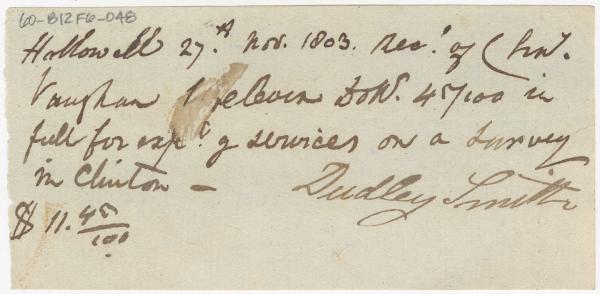 60-B12F6-048
Hallowell 27th Nov. 1803. Recd of Chas.
Vaughan eleven Doll. 45/100 in
full for expc. & services on a survey
in Clinton —
Dudley Smith
$ 11. 45/100